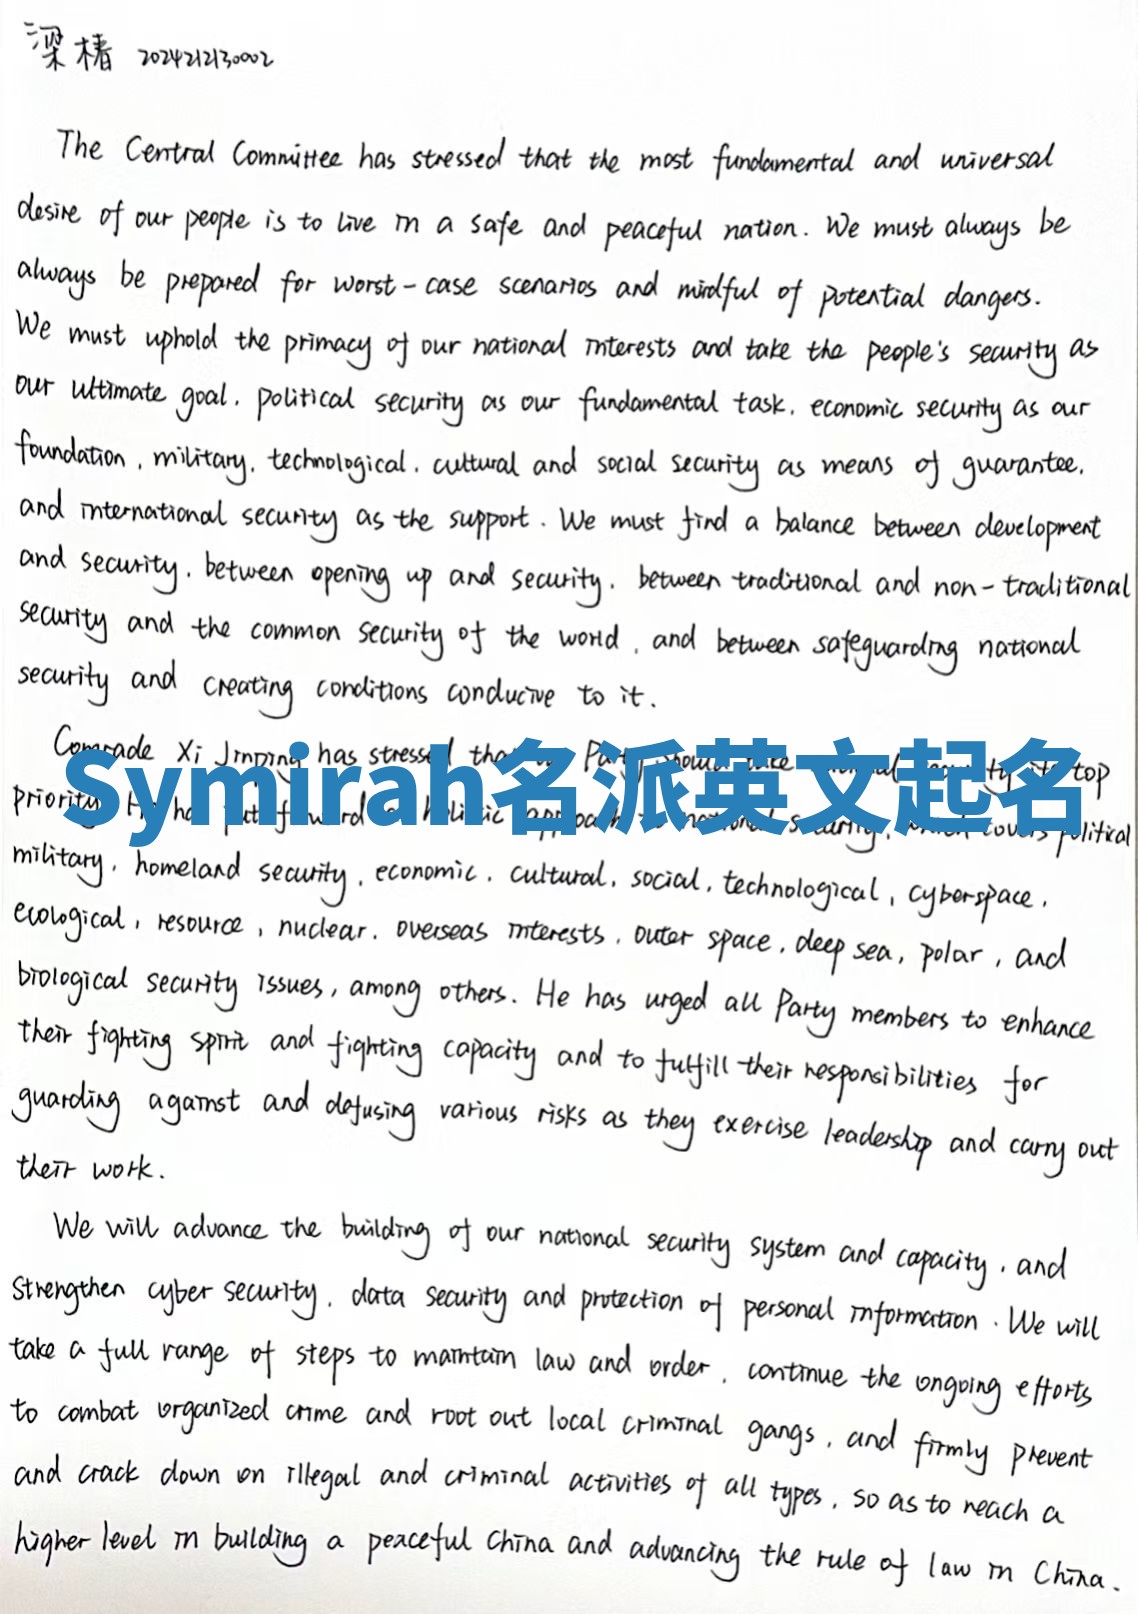 梁椿 2024212130002
The Central Committee has stressed that the most fundamental and universal
desire of our people is to live in a safe and peaceful nation. We must always be
always be prepared for worst-case scenarios and mindful of potential dangers.
We must uphold the primacy of our national interests and take the people's security as
our ultimate goal, political security as our fundamental task, economic security as our
foundation, military, technological, cultural and social security as means of guarantee,
and international security as the support. We must find a balance between development
and security, between opening up and security, between traditional and non-traditional
security and the common security of the world, and between safeguarding national
security and creating conditions conducive to it.
Comrade Xi Jinping has stressed that Party should take national security its top
Symirah名派英文起名
priority. He has put forward a holistic approach to national security, which covers political
military, homeland security, economic, cultural, social, technological, cyberspace,
ecological, resource, nuclear, overseas interests, outer space, deep sea, polar, and
biological security issues, among others. He has urged all Party members to enhance
their fighting spirit and fighting capacity and to fulfill their responsibilities for
guarding against and defusing various risks as they exercise leadership and carry out
their work.
We will advance the building of our national security system and capacity, and
strengthen cyber security, data security and protection of personal information. We will
take a full range of steps to maintain law and order, continue the ongoing efforts
to combat organized crime and root out local criminal gangs, and firmly prevent
and crack down on illegal and criminal activities of all types, so as to reach a
higher level in building a peaceful China and advancing the rule of law in China.